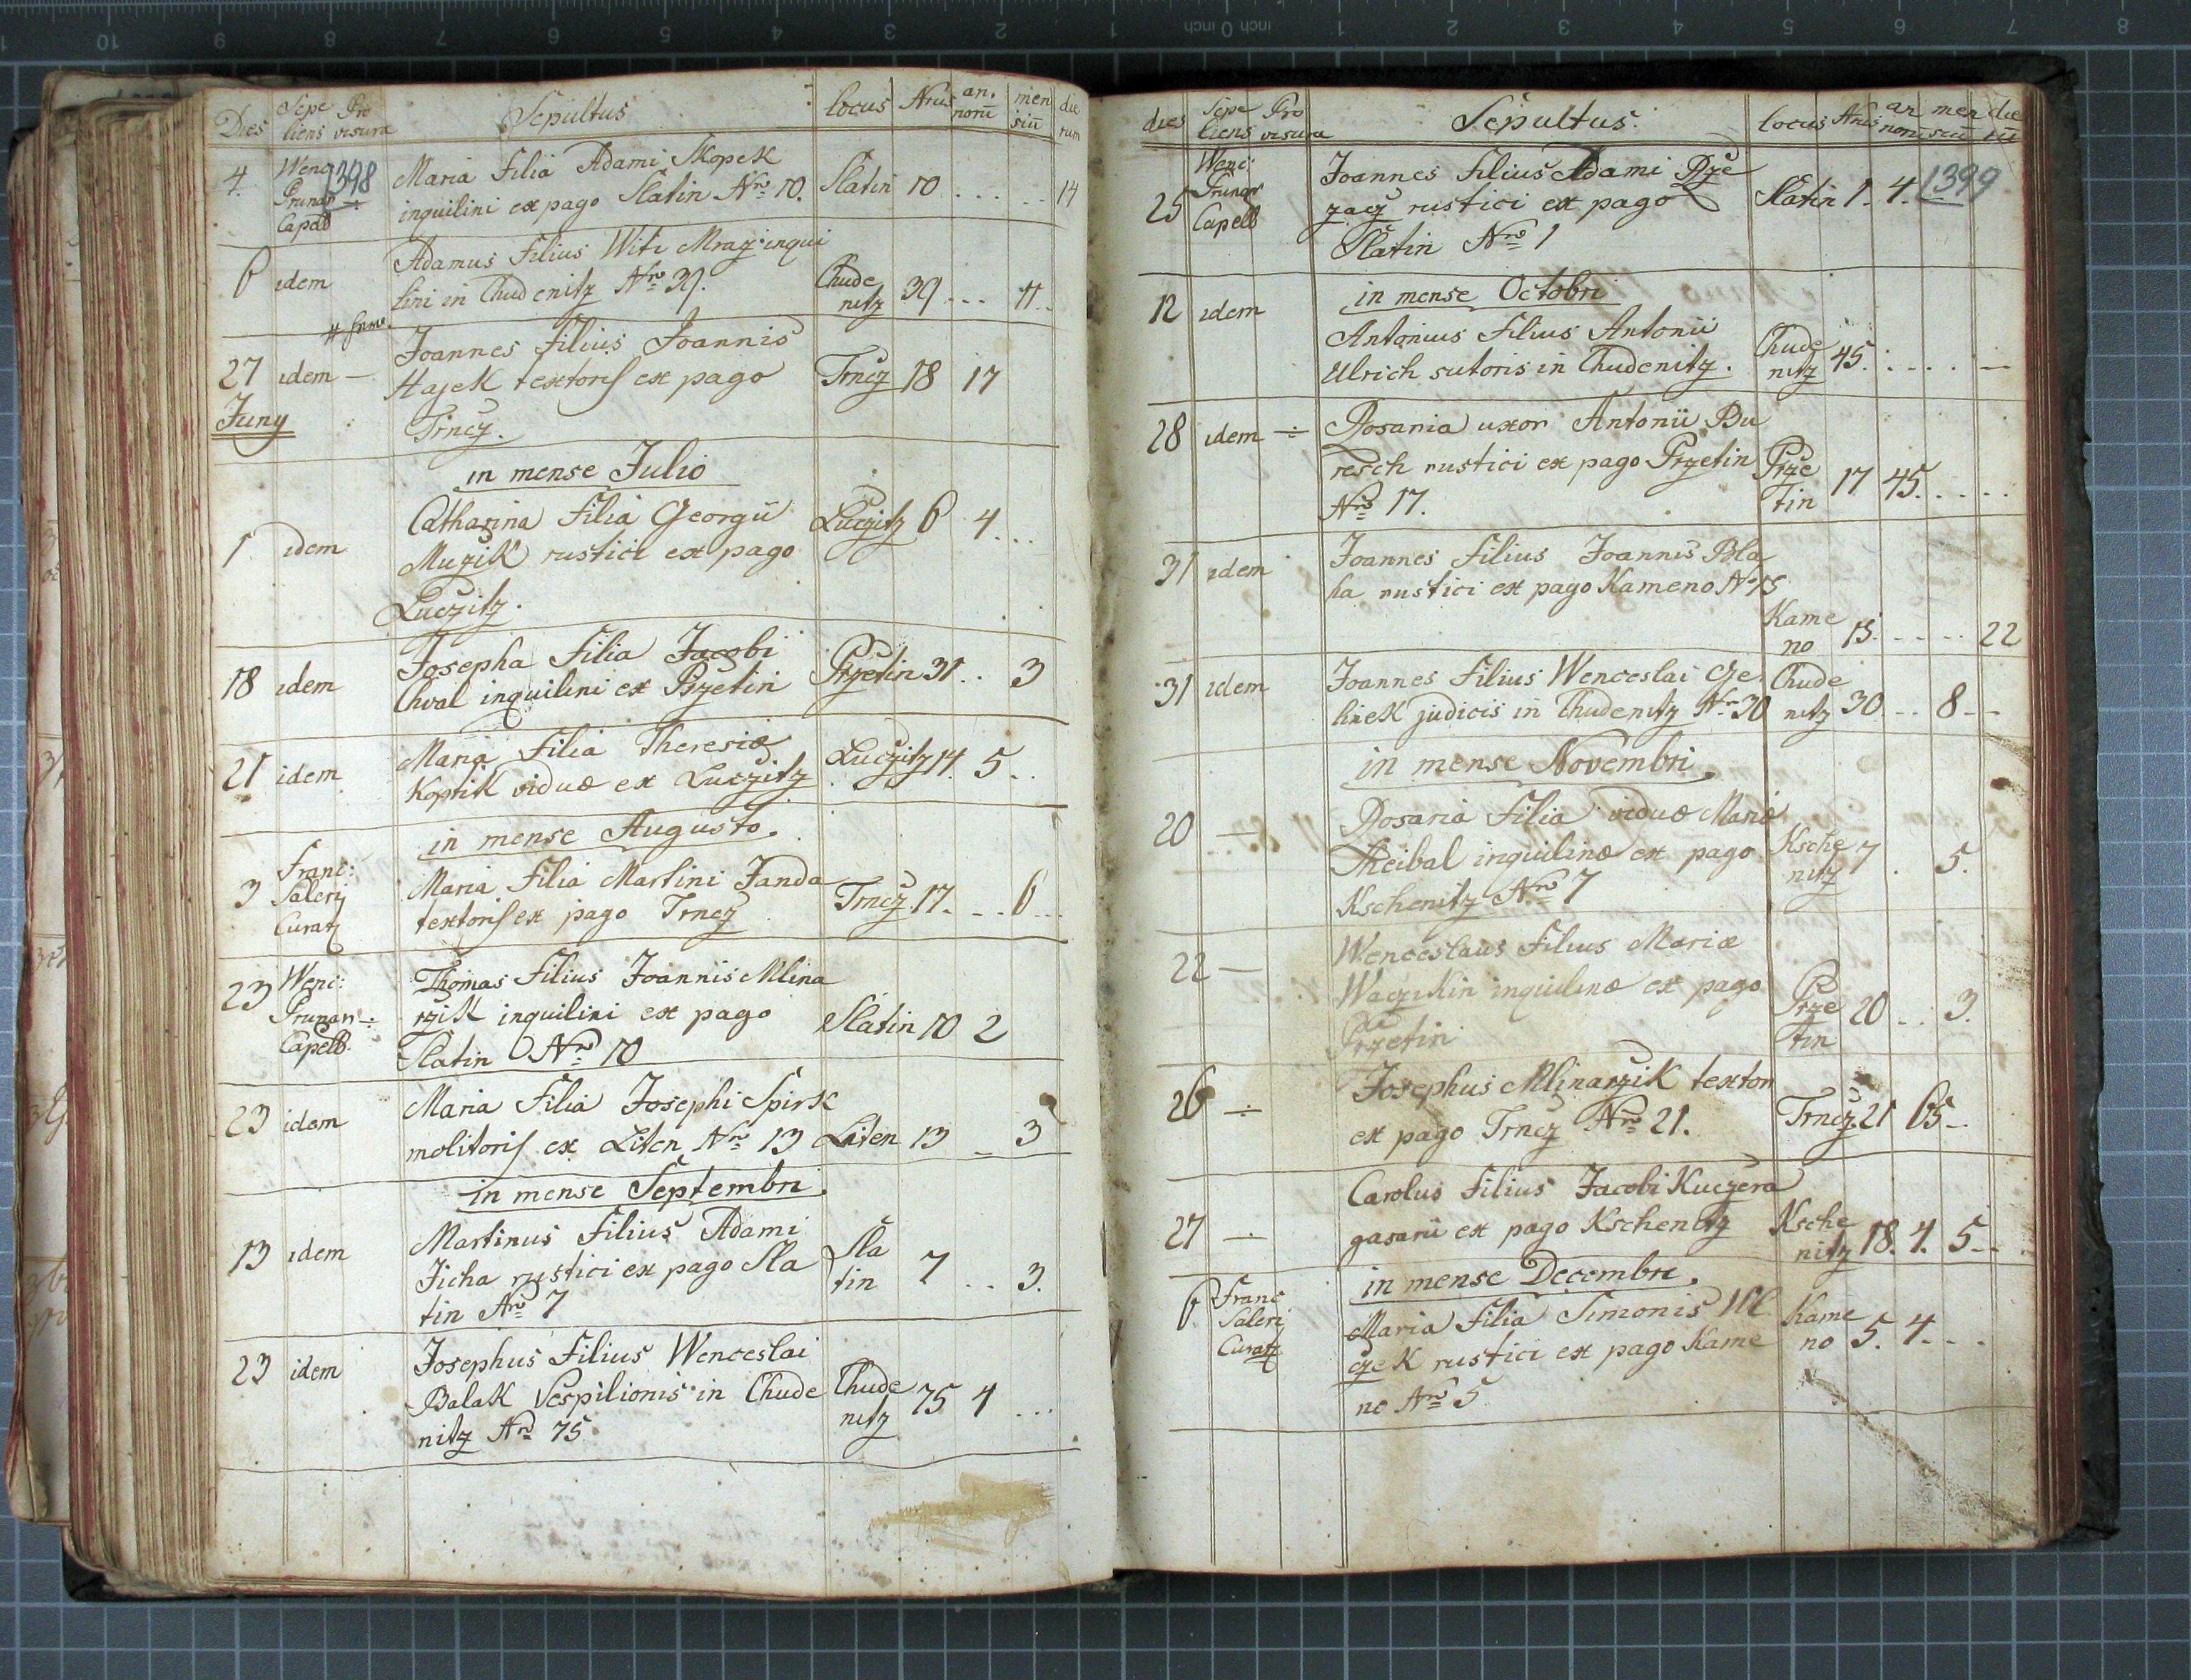 Dies Sepe liens Pro visura Sepultus locus Nrus an. norū men siū die rum
4. Wenc: Prunar Capell 1398 Maria Filia Adami Skopek Slatin 10 . . . . . 14
inquilini ex pago Slatin Nro 10.
6 idem Adamus Filius Witi Mraz inqui Chude nitz 39 . . . 11 . .
lini in Chudenitz Nro 39.
27 idem — Joannes Filius Joannis Trncz 18 17
Juny Hajek textoris ex pago
Trncz.
in mense Julio
1 idem Catharina Filia Georgii Luczitz 6 4 . . .
Muzik rustici ex pago
Luczitz.
18 idem Josepha Filia Jacobi Przetin 31 . . 3
Chval inquilini ex Przetin
21 idem Maria Filia Theresiæ Luczitz 14. 5 . .
Koptik viduæ ex Luczitz
in mense Augusto.
3 Franc: Saleri Curatz Maria Filia Martini Janda Trncz 17. . . 6 . . .
textoris ex pago Trncz
23 Wenc: Prunar ÷ Capell. Thomas Filius Joannis Mlina Slatin 10 2
rzik inquilini ex pago
Slatin Nro 10
23 idem Maria Filia Josephi Spirk Liten 13 _ 3
molitoris ex Liten Nro 13
in mense Septembri.
13 idem Martinus Filius Adami Sla tin 7 . . 3.
Jicha rustici ex pago Sla
tin Nro 7
23 idem Josephus Filius Wenceslai Chude nitz 75 4 . . .
Balak Vespilionis in Chude
nitz Nro 75
dies Sepe liens Pro visura Sepultus. locus Nrus an norū men siū die rū
25 Wenc: Prunar Capell Joannes Filius Adami Rze Slatin 1. 4. 1399
zacz rustici ex pago
Slatin Nro 1
in mense Octobri
12 idem Antonius Filius Antonii Chude nitz 45. . . . . —
Ulrich sutoris in Chudenitz.
28 idem ÷ Rosaria uxor Antonii Bu Prze tin 17 45. . . . .
resch rustici ex pago Przetin
Nro 17.
31 idem Joannes Filius Joannis Bla
ha rustici ex pago Kameno Nro 13
Kame no 13. . . . . 22
31 idem Joannes Filius Wenceslai Ge Chude nitz 30 . . 8 - -
linek judicis in Chudenitz Nro 30
in mense Novembri
20 — Rosaria Filia viduæ Mariæ Ksche nitz 7 . 5.
Skeibal inquilinæ ex pago
Kschenitz Nro 7
22 — Wenceslaus Filius Mariæ Prze tin 20 . . 3.
Waczikin inquilinæ ex pago
Przetin
26 ÷ Josephus Mlinarzik textor Trncz. 21 65 _
ex pago Trncz Nro 21.
27 — Carolus Filius Jacobi Kuczera Ksche nitz 18. 4. 5 - -
gasarii ex pago Kschenitz
in mense Decembri.
6 Franc Saleri Curatz Maria Filia Simonis Wl Kame no 5. 4. . .
czek rustici ex pago Kame
no Nro 5